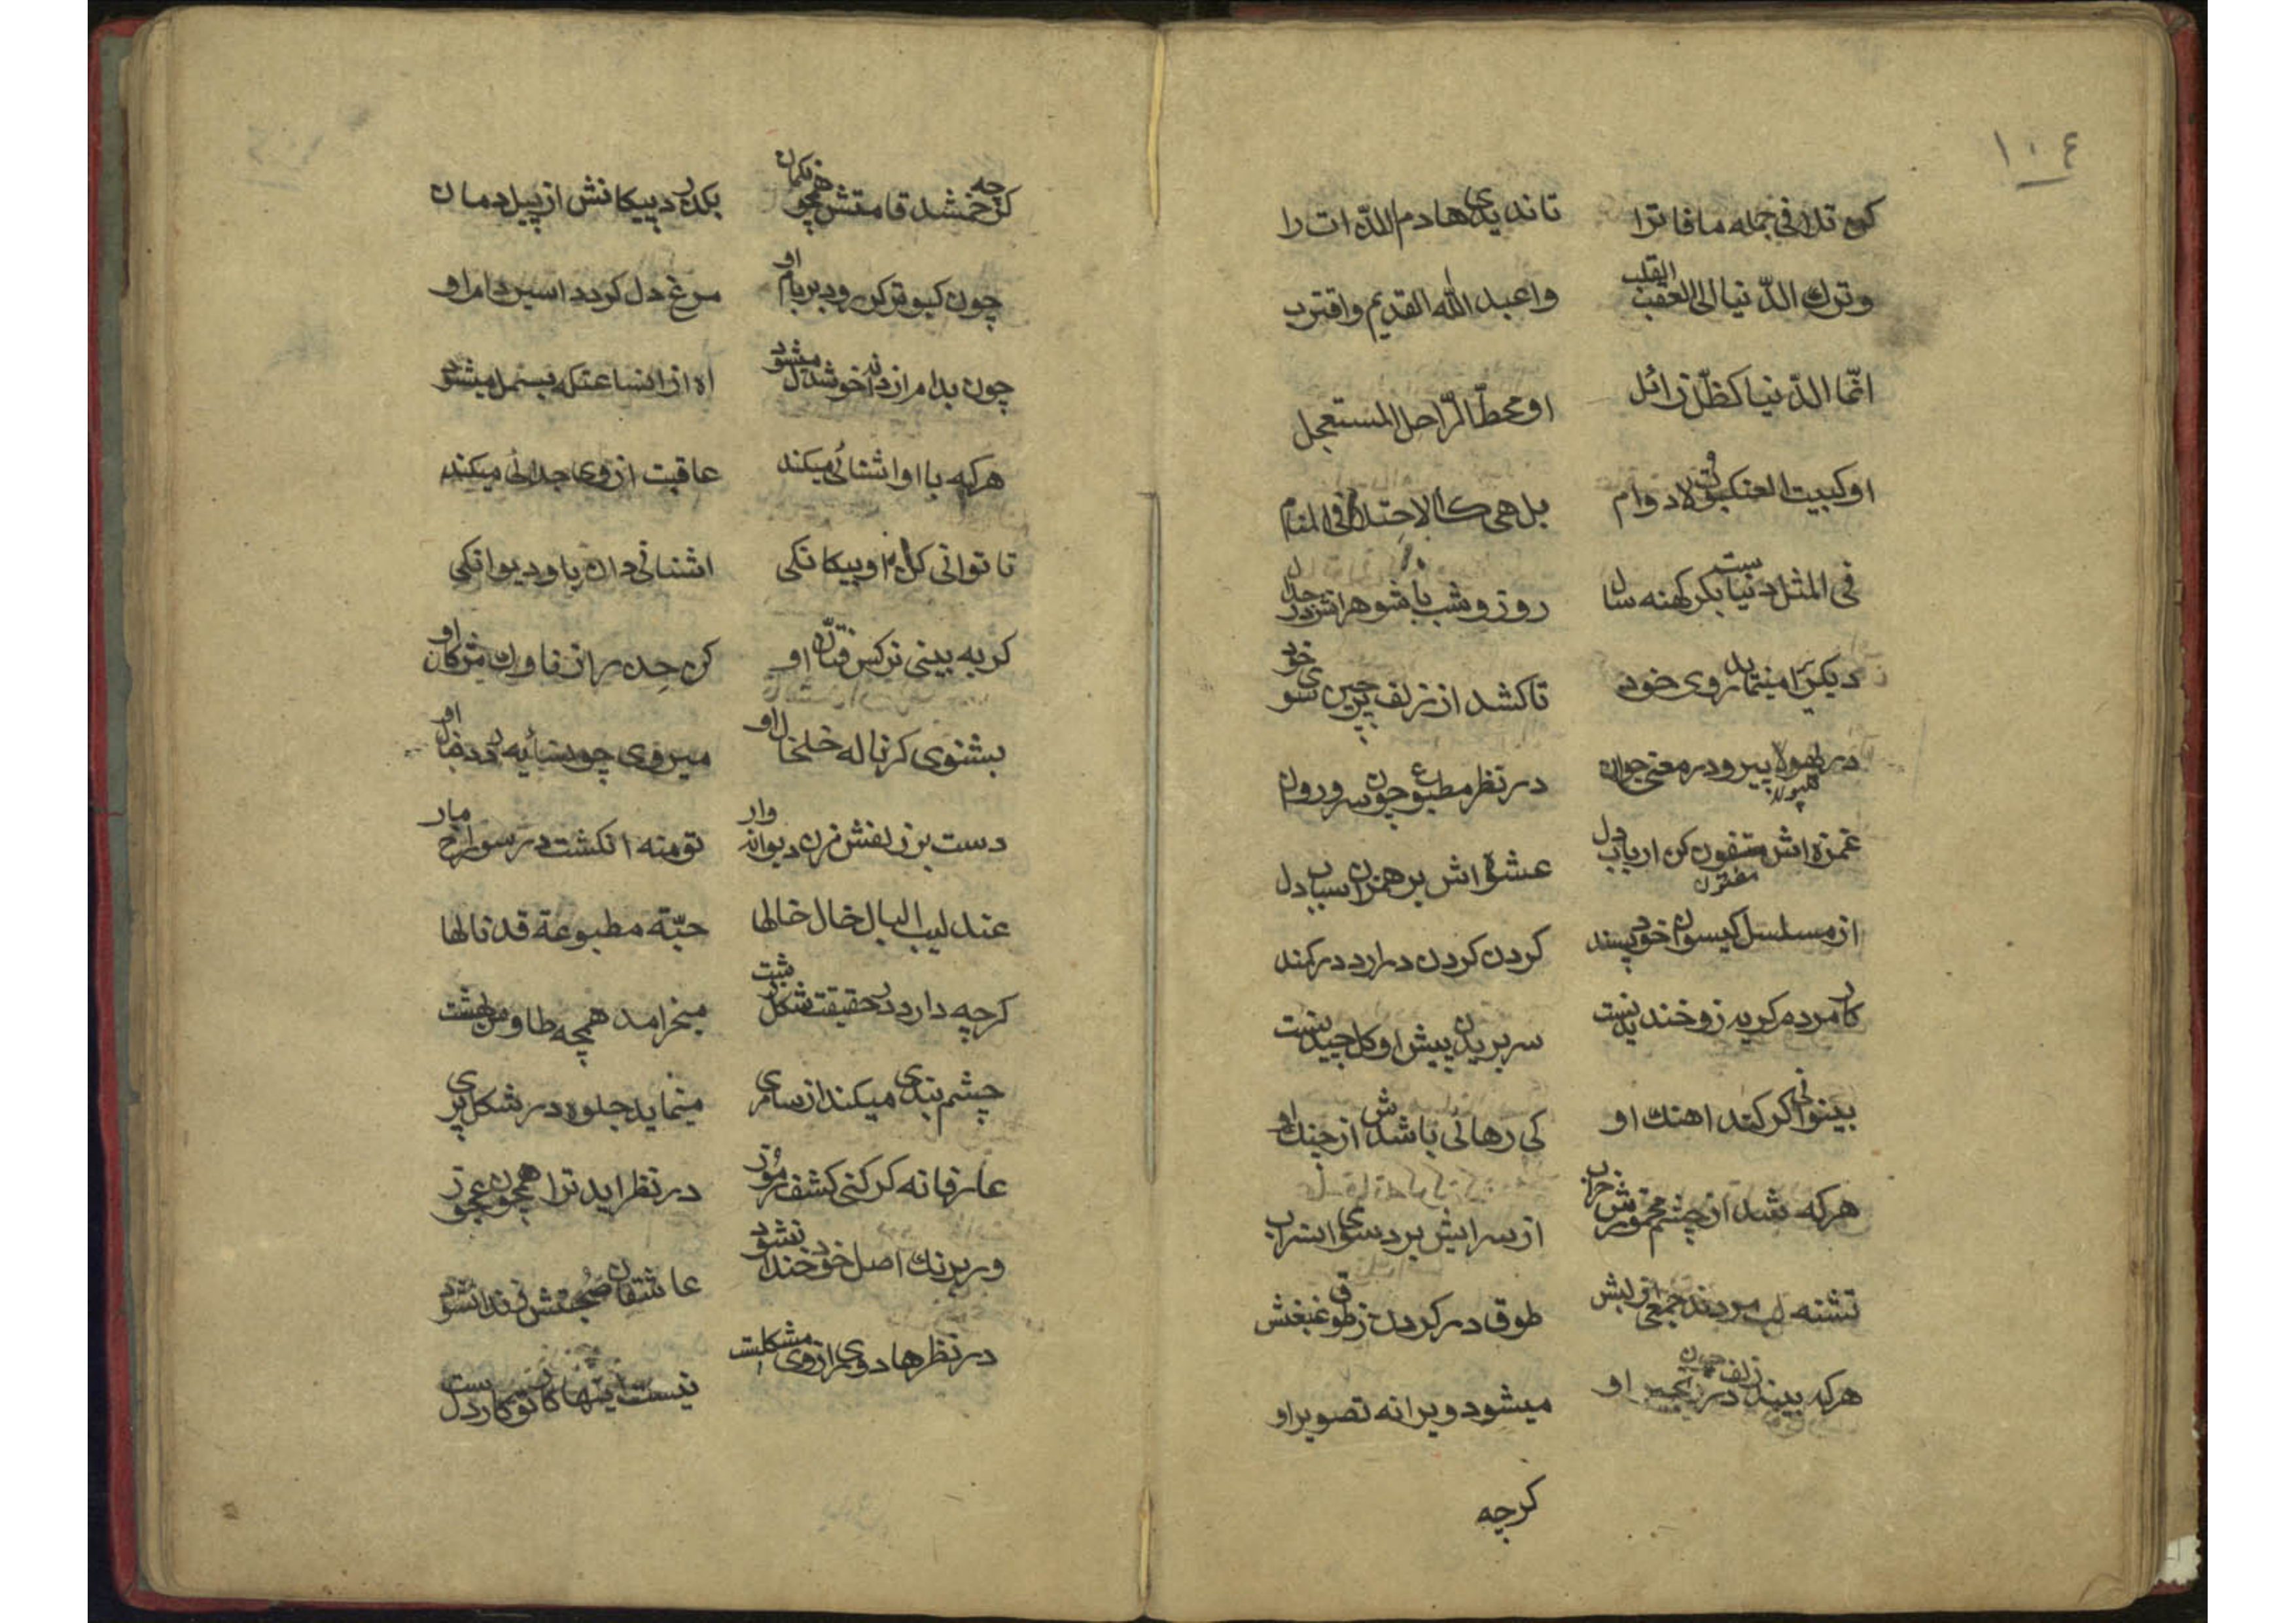 ١٠٤
كن تلافى جمله مافا ترا تا نديدى هادم اللذات را
وترك الدّنيا الى العقبى القلب واعبد الله القديم واقترب
انّما الدّنيا كظلّ زائل او محطّ الرّاحل المستعجل
او كبيت العنكبوت لادوام بل هى كالاحتلام فى المنام
فى المثل دنياست بكر كهنه سال روز وشب با شوهرانش در جدال
ديكرانرا مينمايد روى خود تا كشد از زلف پرچين سوى خود
در طهولا پير ودر معنى جوان در نظر مطبوع چون سرو روان
غمزه اش مفتون كن ارباب دل عشوة اش برهمزن اسباب دل
از مسلسل كيسوان خود پسند كردن كردن درارد در كمند
كار مردم كريه زو خنديدنست سر بريدن پيش او كل چيدنست
بينوائى كر كند اهنك او كى رهائى باشدش از چنك او
هركه شد از چشم مخمورش خراب از سرابش برد سوى اب
تشنه لب مردند جمعى از لبش طوق در كردن ز طوق غبغبش
هركه بيند زلف چون او ميشود ويرانه تصوير او
كرچه
كرچه خم شد قامتش همچو كمان بكذرد پيكانش از پيل دمان
چون كبوتر كر رود بر بام او مرغ دل كردد اسير دام او
چون بدام از دانه خوشدل ميشود اه از انساعتكه بسمل ميشود
هركه با او اشنائى ميكند عاقبت از وى جدائى ميكند
تا توانى كن او بيكانكى اشنائى دان باو ديوانكى
كر به بينى نركس فتان او كن حذر از ناوك مژكان او
بشنوى كر ناله خلخال او ميروى چون سايه در دنبال او
دست بر زلفش مزن ديوانه وار تو منه انكشت در سوراخ مار
عند لبيب البال خال خالها حبّة مطبوعة قد نالها
كرچه دارد در حقيقت شكل زشت ميخرامد همچه طاوس بهشت
چشم بندى ميكند از سامرى مينمايد جلوه در شكل پرى
عارفانه كر كنى كشف رموز در نظر ايد ترا همچون عجوز
ور برنك اصل خود خندان شود عاشقان صحبتش نشود
در نظرها دورى از وى مشكلست نيست اينها كار تو كار دلست